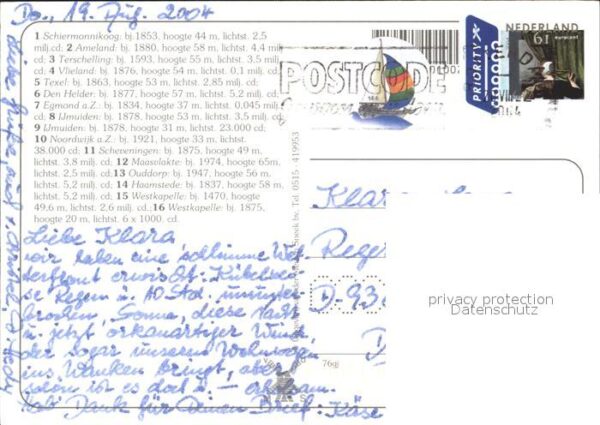 Do., 19. Aug. 2004
1 Schiermonnikoog: bj.1853, hoogte 44 m, lichtst. 2,5
milj.cd; 2 Ameland: bj. 1880, hoogte 58 m, lichtst. 4,4
milj. cd; 3 Terschelling: bj. 1593, hoogte 55 m, lichtst. 3,5
milj. cd; 4 Vlieland: bj. 1876, hoogte 54 m, lichtst. 0,1 milj. cd;
5 Texel: bj. 1863, hoogte 53 m, lichtst. 2,85 milj. cd;
6 Den Helder: bj. 1877, hoogte 57 m, lichtst. 5,2 milj. cd;
7 Egmond a.Z.: bj. 1834, hoogte 37 m, lichtst. 0.045 milj.
cd; 8 IJmuiden: bj. 1878, hoogte 53 m, lichtst. 3.5 milj. cd;
9 IJmuiden: bj. 1878, hoogte 31 m, lichtst. 23.000 cd;
10 Noordwijk a.Z.: bj. 1921, hoogte 33 m, lichtst.
38.000 cd; 11 Scheveningen: bj. 1875, hoogte 49 m,
lichtst. 3.8 milj. cd; 12 Maasvlakte: bj. 1974, hoogte 65m,
lichtst. 2,5 milj. cd; 13 Ouddorp: bj. 1947, hoogte 56 m,
lichtst. 5,2 milj. cd; 14 Haamstede: bj. 1837, hoogte 58 m,
lichtst. 5,2 milj. cd; 15 Westkapelle: bj. 1470, hoogte
49,6 m, lichtst. 2,6 milj. cd.; 16 Westkapelle: bj. 1875,
hoogte 20 m, lichtst. 6 x 1000. cd.
Liebe Klara
wir haben eine schlimme Wet
terfront erwischt: Kübelwei
se Regen u. 10 Std. ununter
brochen Sonne, diese Nacht
u. jetzt orkanartiger Wind,
der sogar unseren Wohnwagen
ins Wanken bringt, aber
schön ist es doch u. – erholsam.
Hab Dank für Deinen Brief: Käse
Liebe Grüße, auch v. Christel,
Hedy
POSTCODE
NEDERLAND
PRIORITY
61
eurocent
Tel. 0515 - 419953
76gj
Klara
Rege
D-936
D
privacy protection
Datenschutz